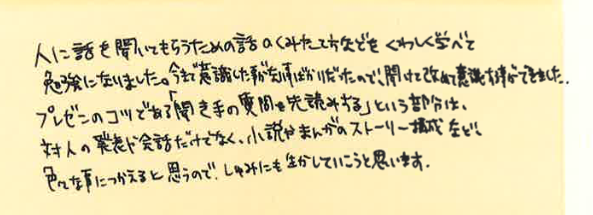 人に話を聞いてもらうための話のくみたて方などをくわしく学べて
勉強になりました。今まで意識した事が無い事ばかりだったので、聞けて改めて意識する事ができました。
プレゼンのコツである「聞き手の質問を先読みする」という部分は、
対人の発表や会話だけでなく、小説やまんがのストーリー構成など、
色々な事につかえると思うので、しゅみにも生かしていこうと思います。